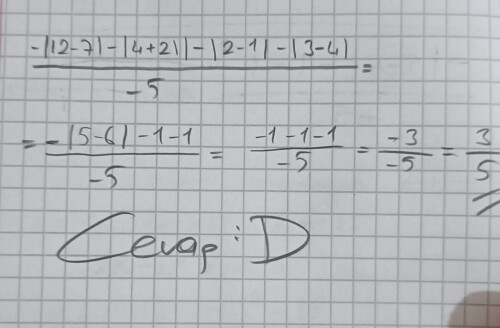 -||2-7|-|4+2||-|2-1|-|3-4| / -5 =
= -|5-6|-1-1 / -5 = -1-1-1 / -5 = -3 / -5 = 3 / 5
Cevap: D